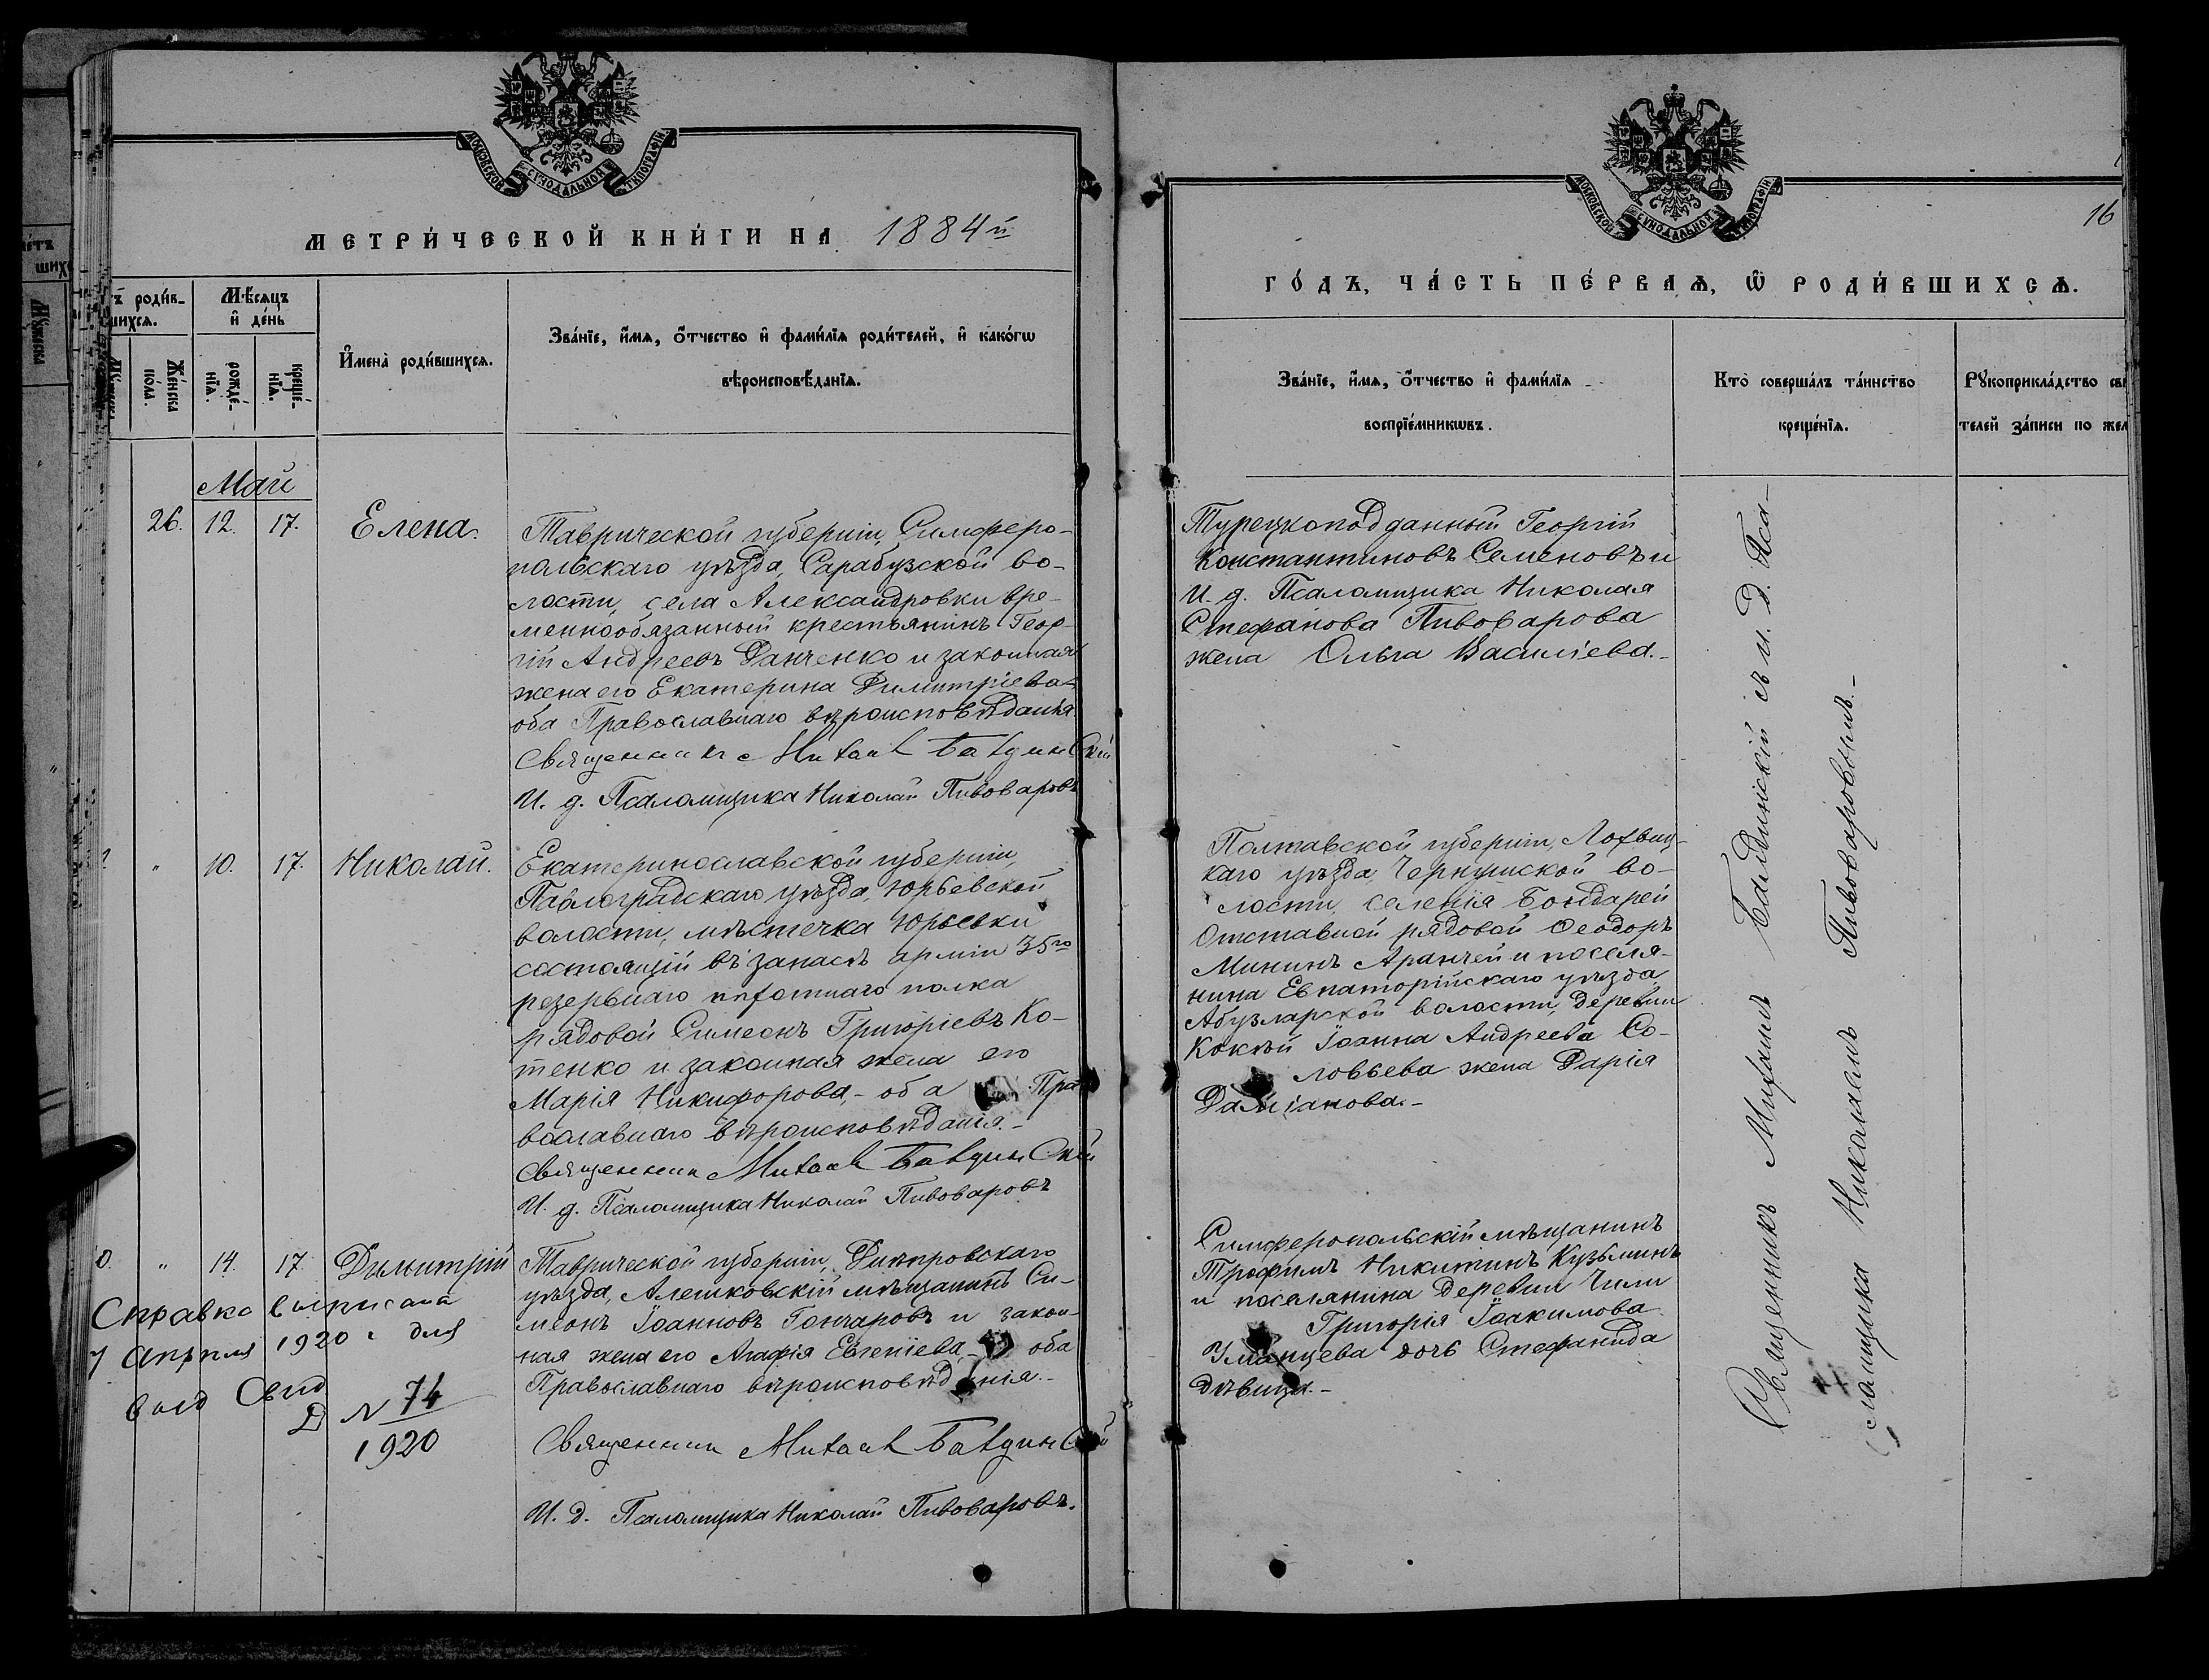 МОСКОВСКОЙ СУНОДАЛЬНОЙ ТУПОГРАФІИ
МЕТРИ́ЧЕСКОЙ КНИ́ГИ НА 1884й
ъ роди́в-
шихсѧ.
Мѣ́сѧцъ
и҆ де́нь
Же́нска
по́ла.
рожде́-
нїѧ.
креще́-
нїѧ.
И҆мена̀ роди́вшихсѧ.
Зва́нїе, и҆́мѧ, ѻ҆́тчество и҆ фами́лїѧ роди́телей, и҆ како́гѡ
вѣроисповѣ́данїѧ.
Май
26. 12. 17. Елена.
Таврической губерніи, Симферо-
польскаго уѣзда, Сарабузской во-
лости, села Александровки вре-
меннообязанный крестьянинъ Геор-
гій Андреевъ Данченко и законная
жена его Екатерина Димитріева
оба Православнаго вѣроисповѣданія.
Священникъ Михаил Балдинскій
И. д. Псаломщика Николай Пивоваровъ
" 10. 17. Николай.
Екатеринославской губерніи,
Павлоградскаго уѣзда, Юрьевской
волости, мѣстечка Юрьевки
состоящій въ запасѣ арміи 35го
резервнаго пѣхотнаго полка
рядовой Симеонъ Григоріевъ Ко-
тенко и законная жена его
Марія Никифорова, - оба Пра
вославнаго вѣроисповѣданія.-
Священник Михаил Балдинскій
И. д. Псаломщика Николай Пивоваровъ
0. " 14. 17. Димитрій
Таврической губерніи, Днѣпровскаго
уѣзда, Алешковскій мѣщанинъ Си-
меонъ Іоанновъ Гончаровъ и закон-
ная жена его Агафія Евгеніева, - оба
Православнаго вѣроисповѣданія.-
Священник Михаил Балдинскій
И. д. Псаломщика Николай Пивоваровъ.
Справка выписана
7 апрѣля 1920 г для
№ 74
1920
МОСКОВСКОЙ СУНОДАЛЬНОЙ ТУПОГРАФІИ
16
ГО́ДЪ, ЧА́СТЬ ПЕ́РВАѦ, Ѡ҆ РОДИ́ВШИХСѦ.
Зва́нїе, и҆́мѧ, ѻ҆́тчество и҆ фами́лїѧ
воспрїе́мникѡвъ.
Кто̀ соверша́лъ та́инство
креще́нїѧ.
Рꙋкоприкла́дство сви
телей за́писи по жел
Турецкоподданный Георгій
Константиновъ Семеновъ и
И. д. Псаломщика Николая
Стефанова Пивоварова
жена Ольга Васильева.-
Полтавской губерніи, Лохвиц-
каго уѣзда, волости, селенія Бондарей
Отставной рядовой Ѳеодоръ
Мининъ Аранчей и поселя-
нина Евпаторійскаго уѣзда
Абузларской волости, деревни
Кокѣй Іоанна Андреева Со-
ловьева жена Дарія
Даміанова.-
Симферопольскій мѣщанинъ
Трофимъ Никитинъ Кузьминъ
и поселянина деревни Чили
Григорія Іоакимова
Уманцева дочь Стефанида
дѣвица.-
Священникъ Михаилъ Балдинскій съ и. д. Пса-
ломщика Николаемъ Пивоваровымъ.-